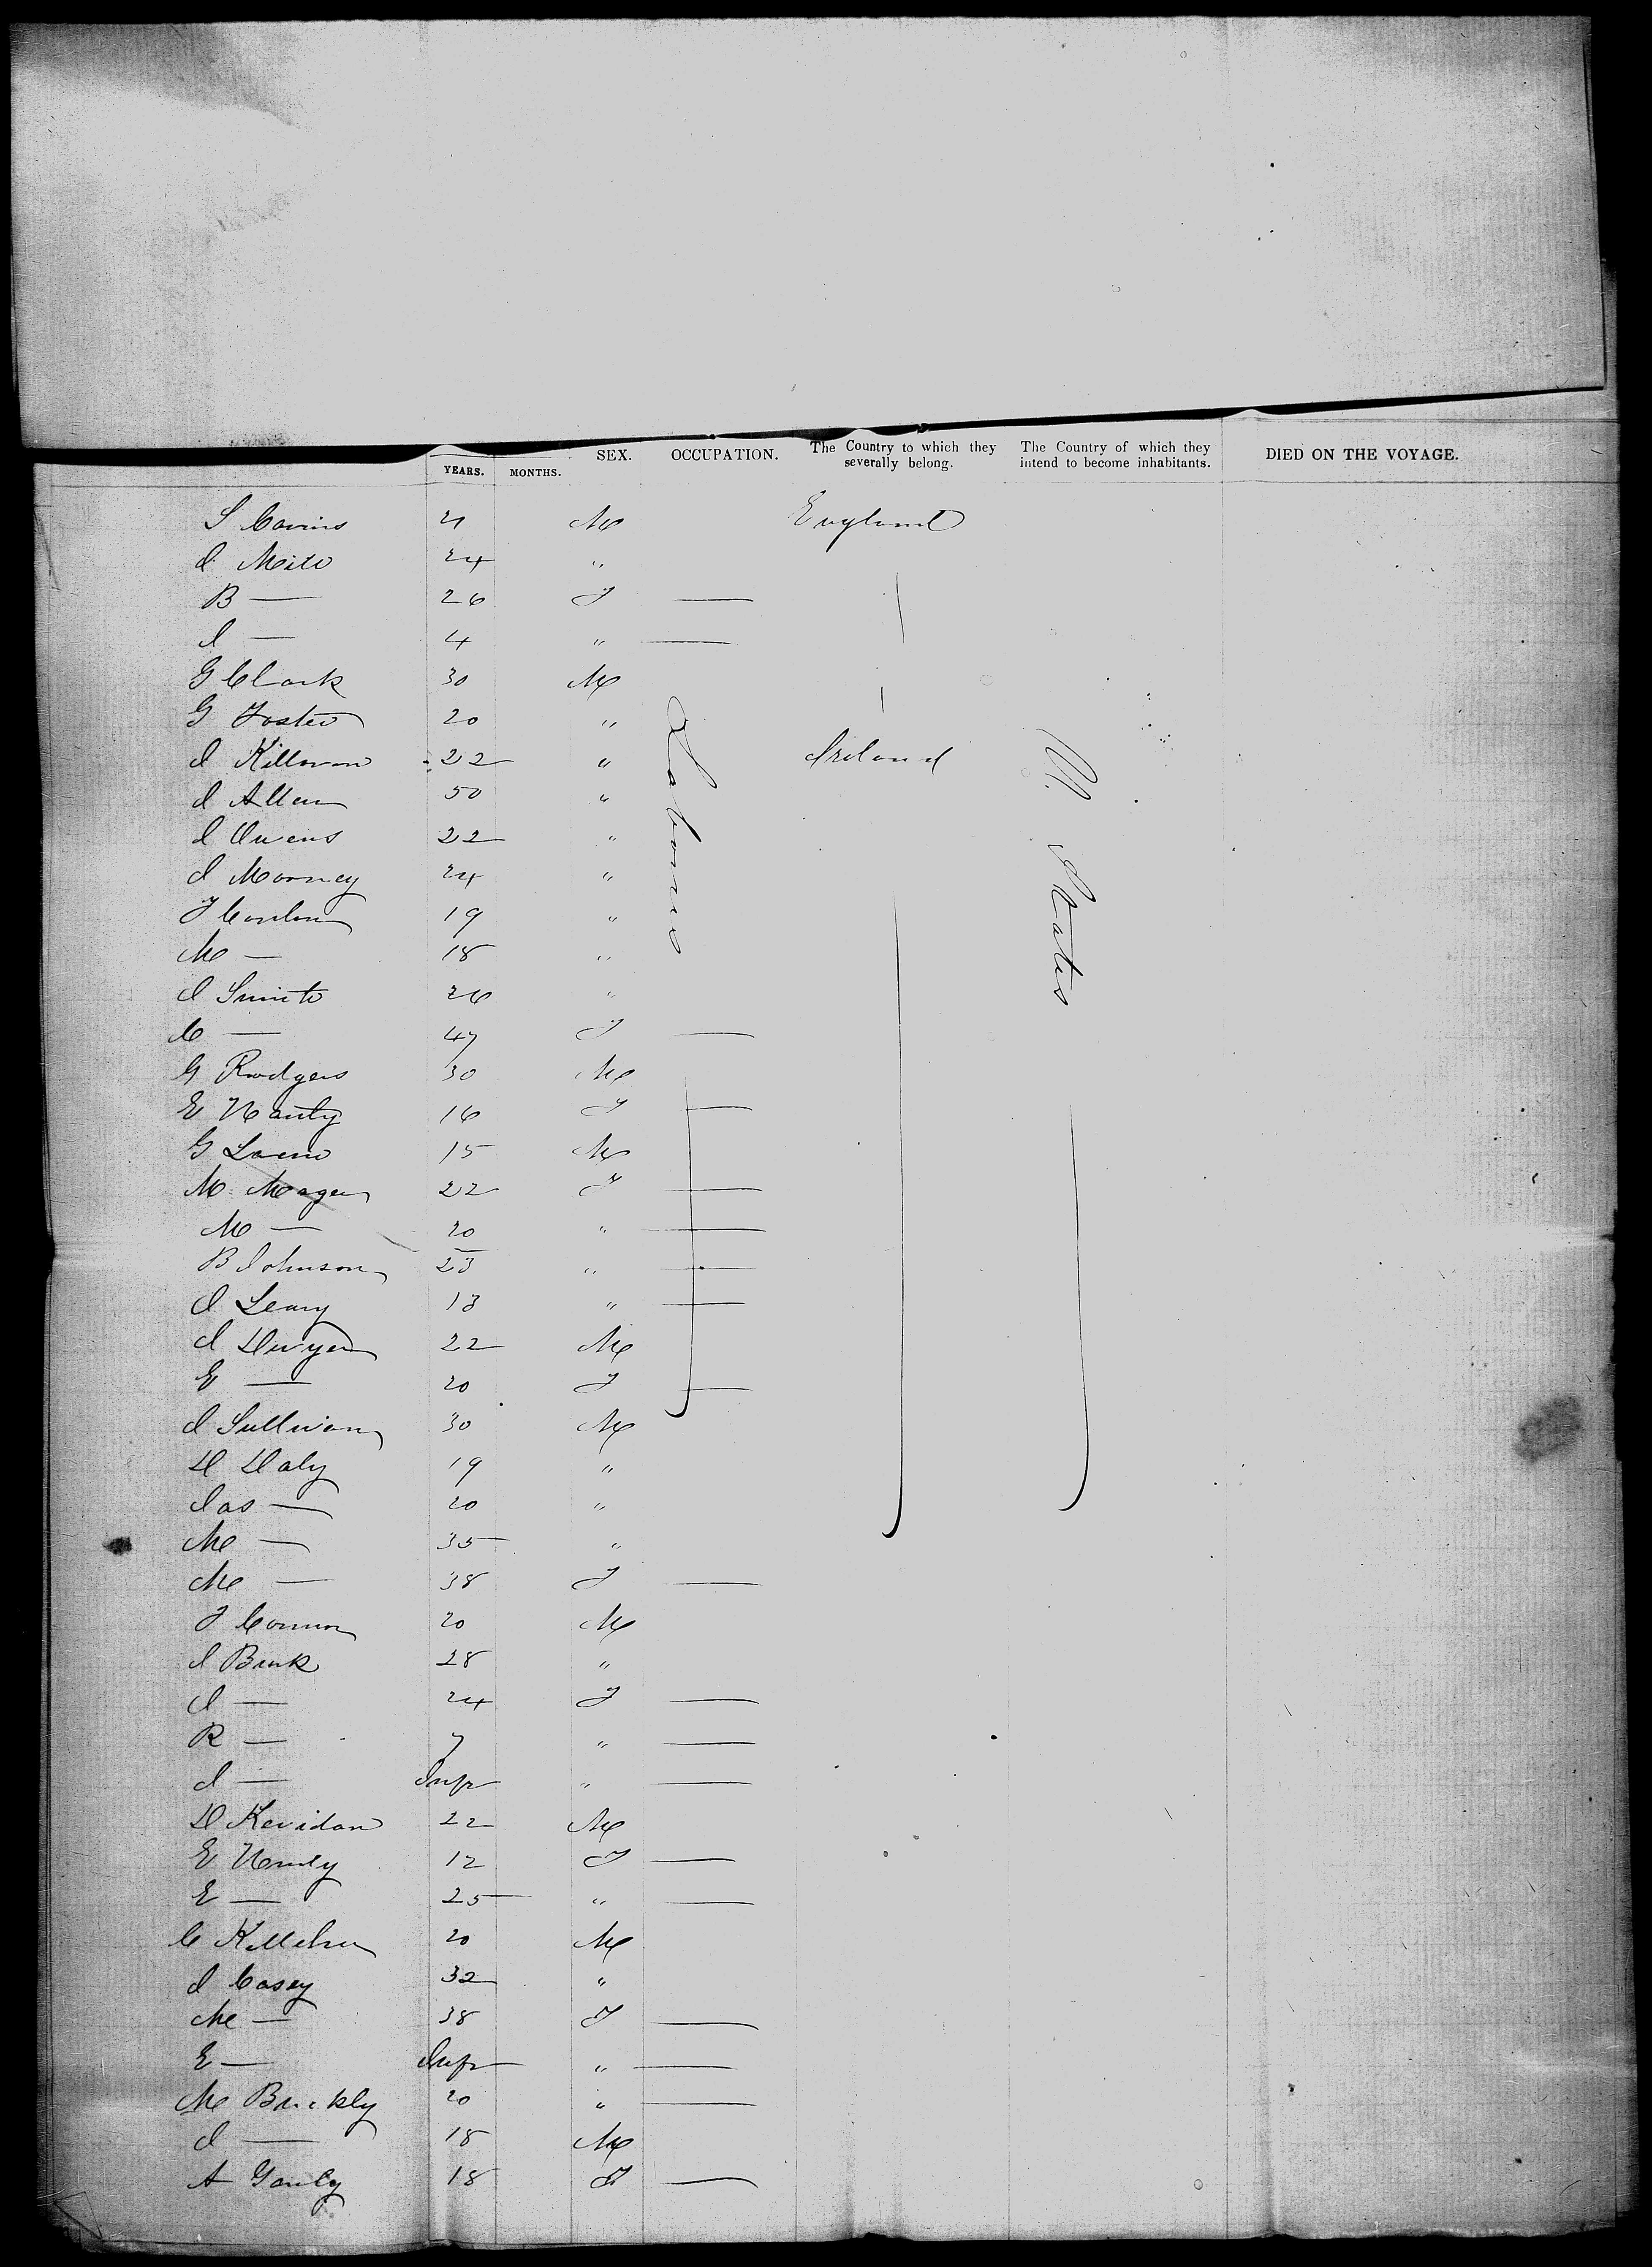 YEARS. MONTHS. SEX. OCCUPATION. The Country to which they severally belong. The Country of which they intend to become inhabitants. DIED ON THE VOYAGE.
S 21 M England
J 24 "
B — 26 F —
J — 4 " —
G Clark 30 M
G Foster 20 "
J Killoran 22 " Ireland
J Allen 50 "
J Owens 22 "
J Mooney 24 "
J Conlon 19 "
M — 18 "
J Smith 26 "
C — 47 F —
G Rodgers 30 M
E 16 F —
G 15 M
M Magen 22 F —
M — 20 " —
B Johnson 23 " —
J Leary 13 " —
J Dwyer 22 M
E — 20 F —
J Sullivan 30 M
D Daly 19 "
Jas — 20 "
M — 35 "
M — 38 F —
J Connor 20 M
J Burk 28 "
J — 24 F —
R — 7 " —
J — Inft " —
D 22 M
E 12 F —
E — 25 " —
C 20 M
J Casey 32 "
M — 38 F —
E — Inft " —
M Buckly 20 " —
J — 18 M
A 18 F —
Labourers
U. States